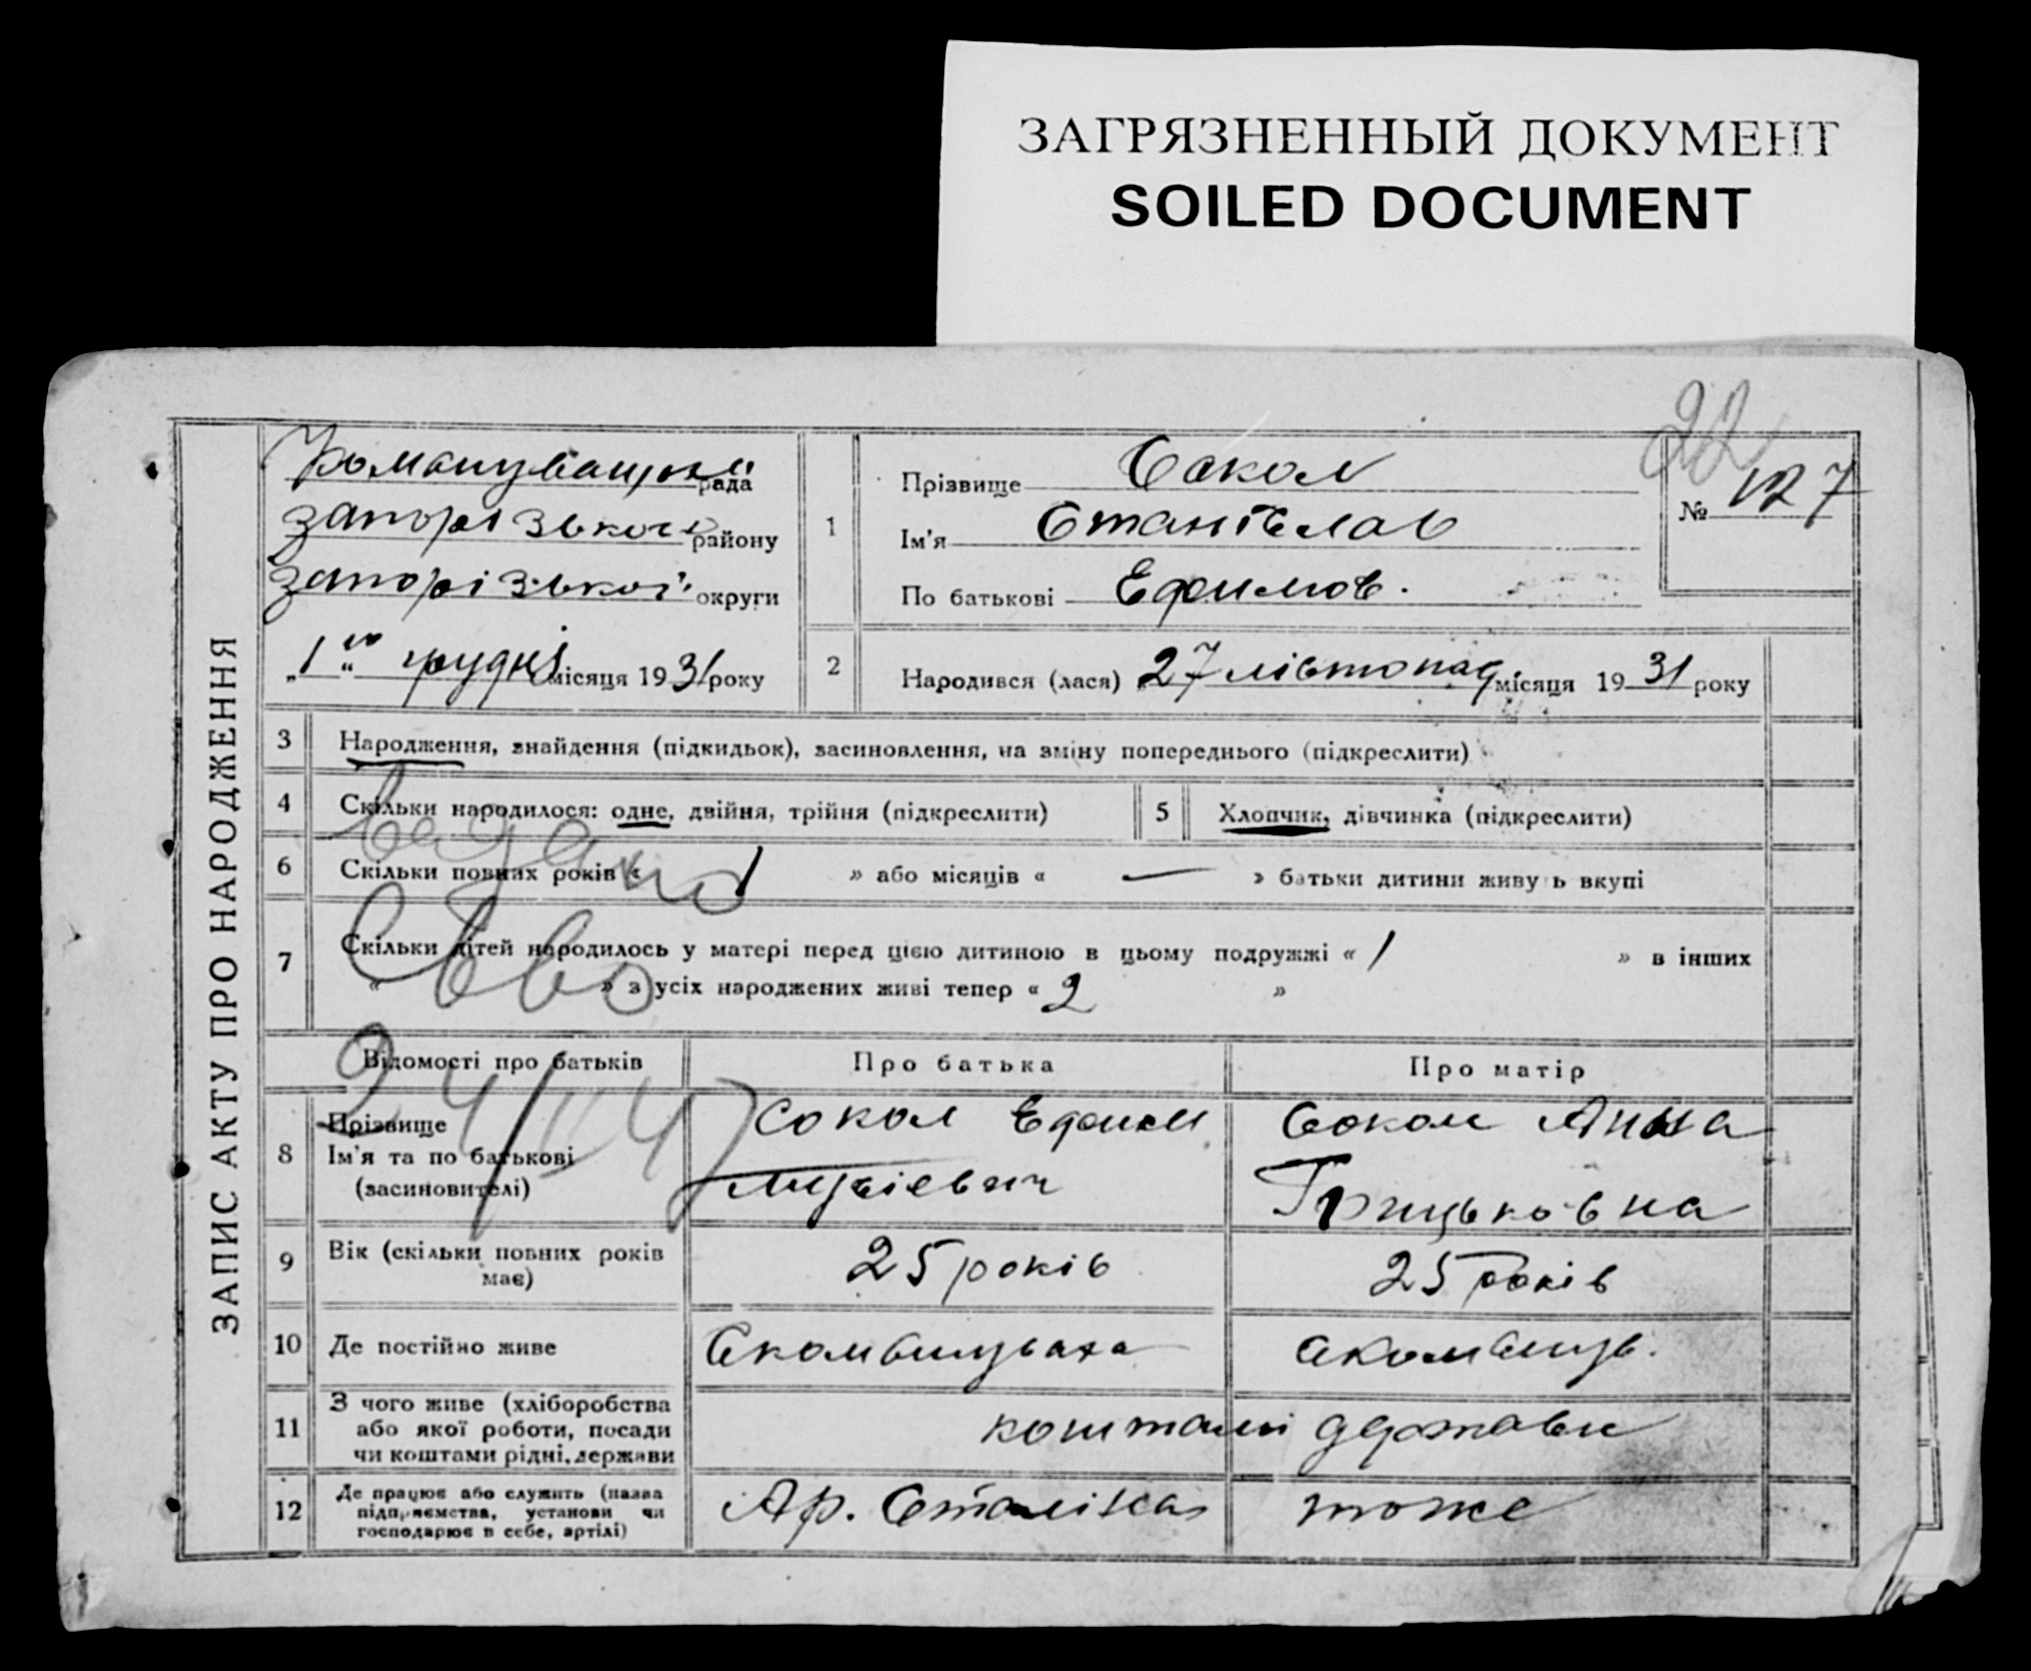 ЗАГРЯЗНЕННЫЙ ДОКУМЕНТ
SOILED DOCUMENT
22
ЗАПИС АКТУ ПРО НАРОДЖЕННЯ
рада
Запорізького району
Запорізької округи
„1го“ грудня місяця 1931 року
1
Прізвище Сокол
Ім'я Станіслав
По батькові Ефимов.
№ 127
2 Народився (лася) 27 лівтопад місяця 1931 року
3 Народження, знайдення (підкидьок), засиновлення, на зміну попереднього (підкреслити)
4 Скільки народилося: одне, двійня, трійня (підкреслити)
5 Хлопчик, дівчинка (підкреслити)
6 Скільки повних років « 1 » або місяців « — » батьки дитини живуть вкупі
7 Скільки дітей народилось у матері перед цією дитиною в цьому подружжі « 1 » в інших
« » з усіх народжених живі тепер « 2 »
Видано
Св во
Відомості про батьків Про батька Про матір
8 Прізвище
Ім'я та по батькові
(засиновителі)
Сокол Ефим
Сокол Анна
Грицьковна
9 Вік (скільки повних років
має)
25 років
25 років
10 Де постійно живе
11 З чого живе (хліборобства
або якої роботи, посади
чи коштами рідні, держави
коштами держави
12 Де працює або служить (назва
підприємства, установи чи
господарює в себе, артілі)
Ар. Сталіна
тоже